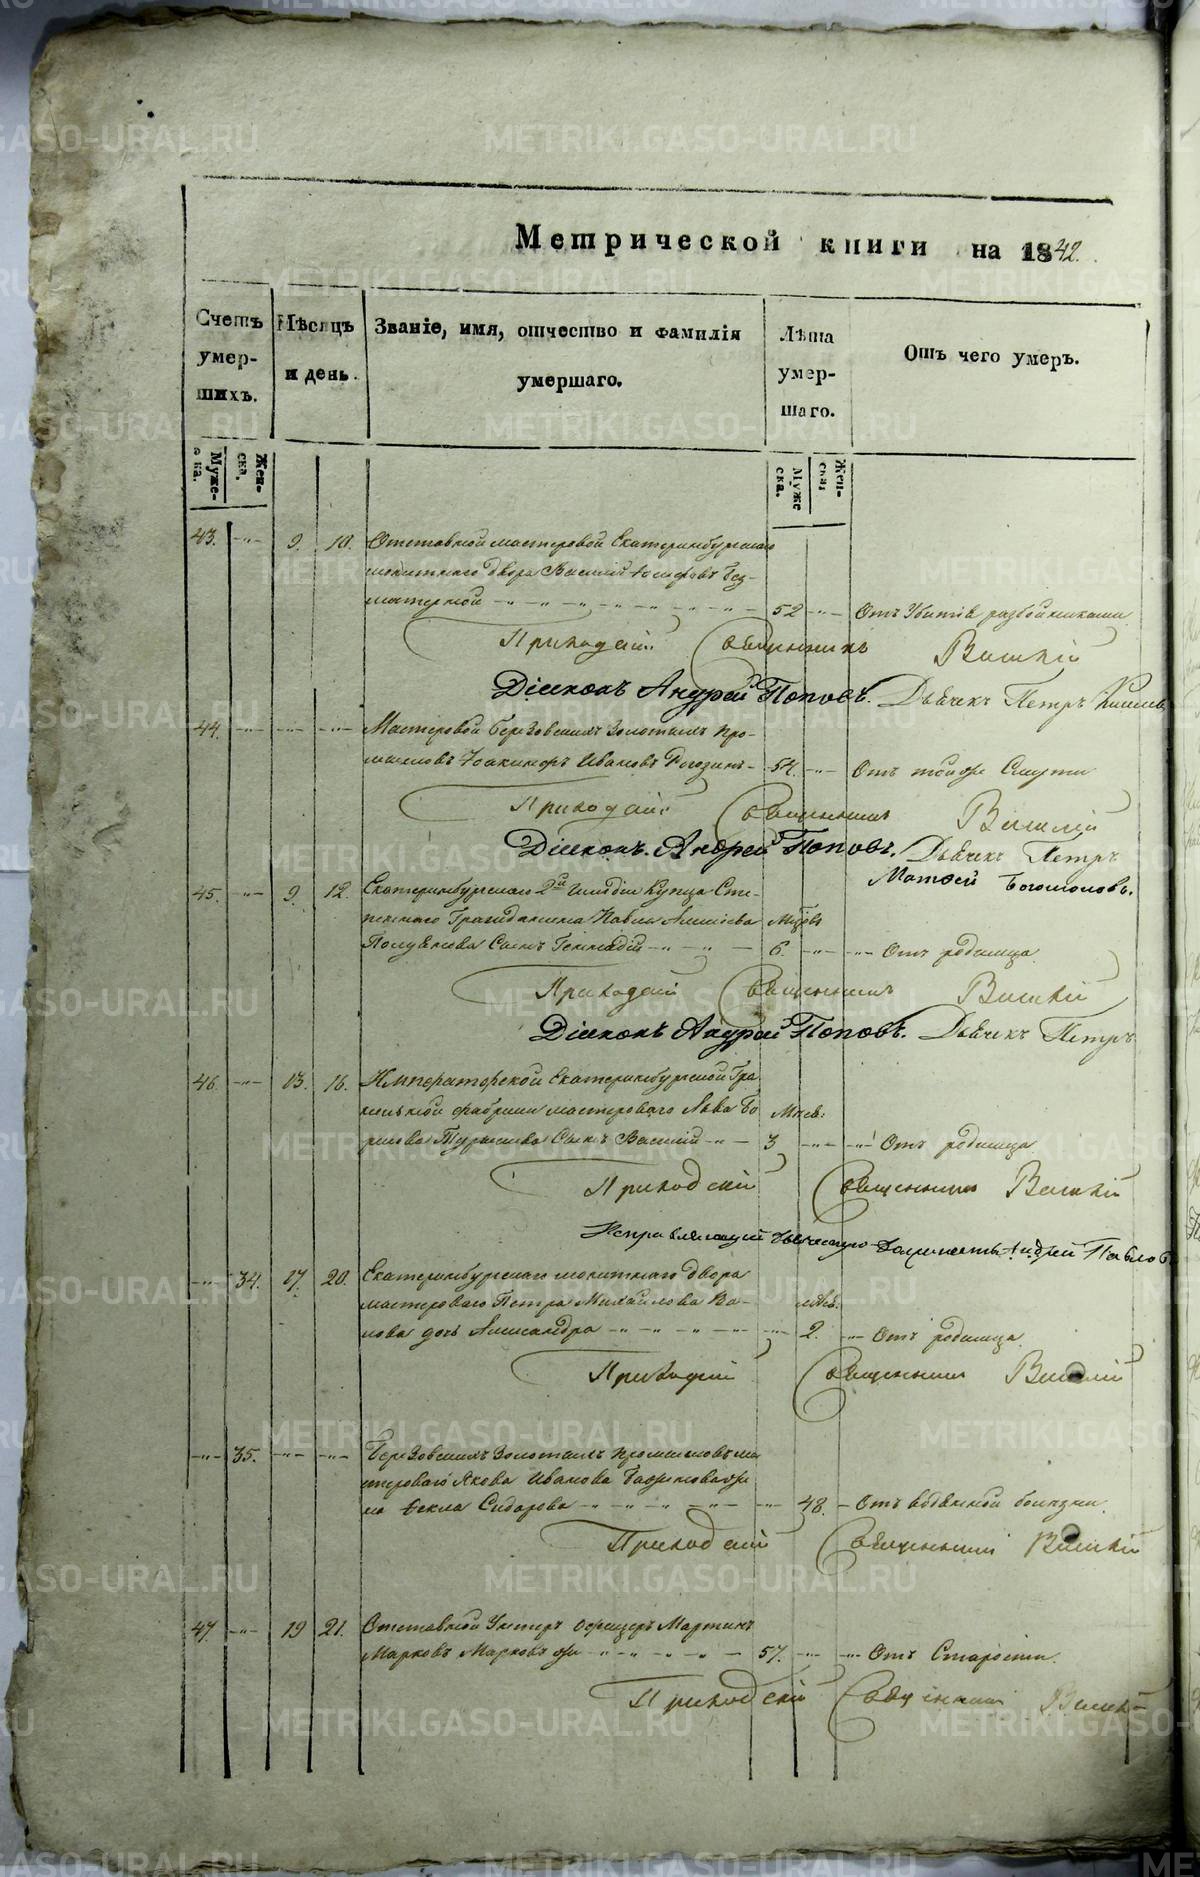 Метрической книги на 1842.
Счетъ умершихъ.
Мѣсяцъ и день.
Званіе, имя, отчество и фамилія умершаго.
Лѣта умершаго.
Отъ чего умеръ.
Мужеска.
Женска.
Мужеска.
Женска.
43. -"- 9. 10. Отставной мастеровой Екатеринбургскаго
монетнаго двора Василій Іосифовъ Без-
матерной 52 -"- Отъ Убитія разбойниками
Приходскій Священникъ Василій
Діаконъ Андрей Поповъ. Дьячекъ Петръ
44. -"- -"- -"- Мастеровой Березовскихъ Золотыхъ про-
мысловъ Іоакимъ Ивановъ Рогозинъ 54. -"- Отъ той же Смерти
Приходскій Священникъ Василій
Діаконъ Андрей Поповъ. Дьячекъ Петръ
Матвей Богомоловъ.
45. -"- 9. 12. Екатеринбургскаго 2й Гильдіи Купца Сте-
пеннаго Гражданина Павла Алексѣева
Полуянова Сынъ Геннадій 6. -"- Отъ родимца
Приходскій Священникъ Василій
Діаконъ Андрей Поповъ. Дьячекъ Петръ
46. -"- 13. 16. Императорской Екатеринбургской Гра-
нильной фабрики мастероваго Льва Бо- Мѣс:
рисова Сынъ Василій 3 -"- Отъ родимца
Приходскій Священникъ Василій
Исправляющій дьяческую должность Андрей Павловъ
-"- 34. 17. 20. Екатеринбургскаго монетнаго двора
мастероваго Петра Михайлова Ва- мѣс:
лова дочь Александра -"- 2. Отъ родимца
Приходскій Священникъ Василій
-"- 35. -"- -"- Березовскихъ Золотыхъ промысловъ ма-
стероваго Якова Иванова Баженова же-
на Ѳекла Сидорова -"- 48. Отъ водяной болезни
Приходскій Священникъ Василій
47. -"- 19 21. Отставной Унтеръ офицеръ Мартинъ
Марковъ 57. -"- Отъ Старости.
Приходскій Священникъ Василій
METRIKI.GASO-URAL.RU